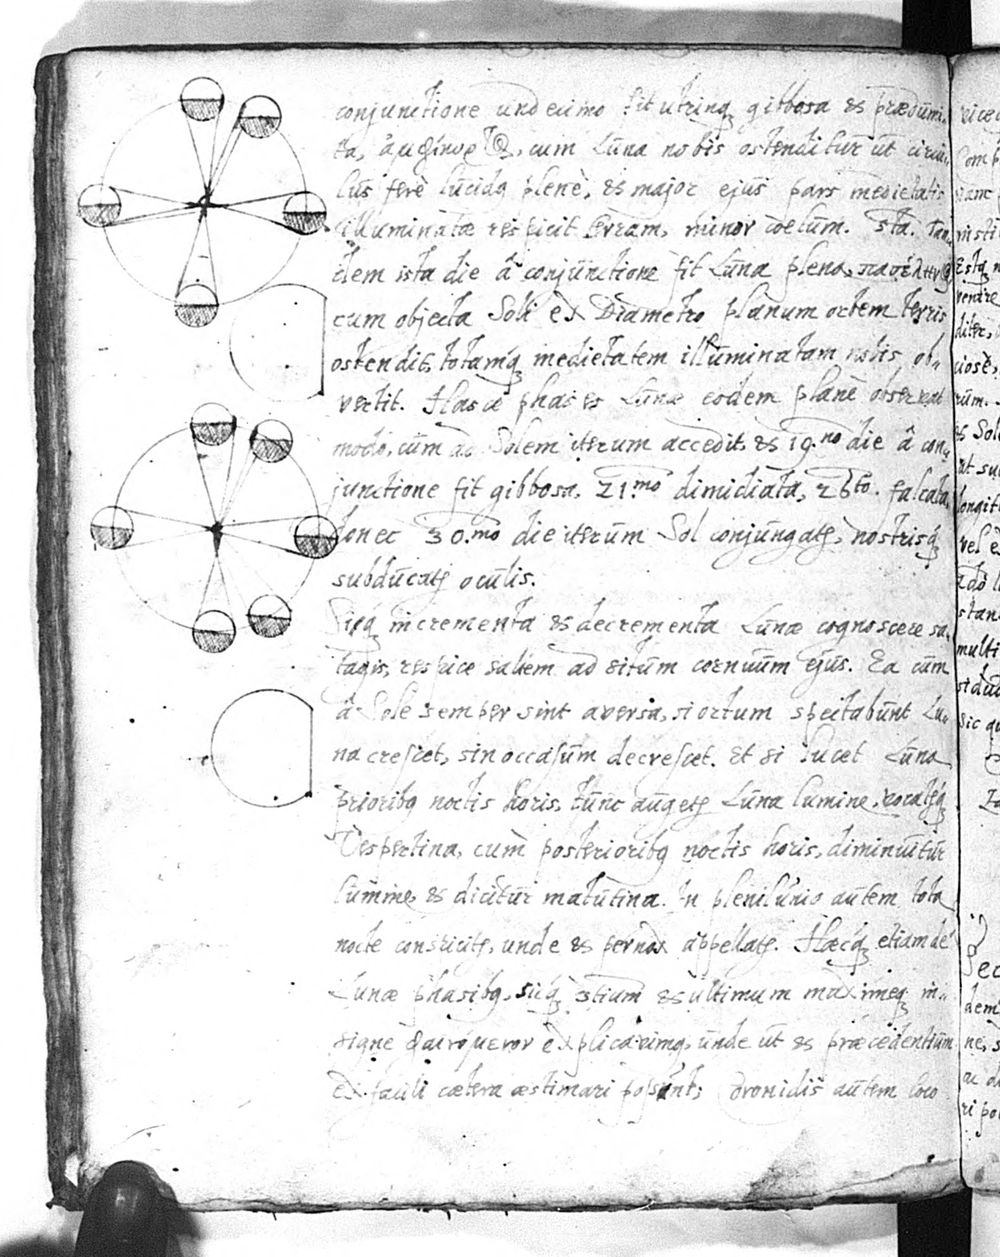 conjunctione undecimo fit utrinq gibbosa & prædimi,
ta, ἀμφίκυρτ@, cum Luna nobis ostenditur ut circu,
lus ferè lucidq plenè, & major ejus pars medietatis
illuminatæ respicit terram, minor coelum. sta. Tan,
dem ista die â conjunctione fit Luna plena, πανσέλην@
cum objecta Soli ex Diametro planum orbem terris
ostendit, totamq medietatem illuminatam nobis ob,
vertit. Hasce phases Lunæ eodem planè observant
modo, cum ad Solem iterum accedit, & 19.no die â con,
junctione fit gibbosa, 21.mo dimidiata, 26to. falcata,
donec 30.mo die iterum Sol conjungatʒ, nostrisq
subducatʒ oculis.
Sicq incrementa & decrementa Lunæ cognoscere sa,
tagis, respice saltem ad situm cornuum ejus. Ea cum
â Sole semper sint aversa, si ortum spectabunt Lu,
na crescet, sin occasum decrescet. Et si lucet Luna
prioribq noctis horis, tunc augetʒ Luna lumine, vocatʒq
Vespertina, cum posterioribq noctis horis, diminuitur
lumine, & dicitur matutina. In plenilunio autem tota
nocte conspicitʒ, unde & pernox appellatʒ. Hæcq etiam de
Lunæ phasibq, sicq 3tium & ultimum maximeq in,
signe φαινόμενον explicavimq, unde ut & præcedentium
ex facili cætera æstimari possunt; Coronidis autem loco